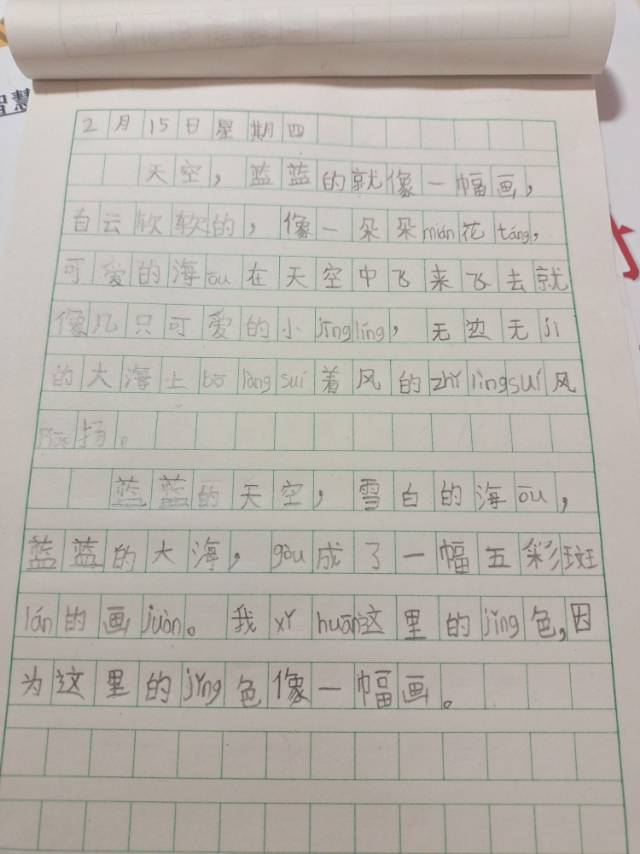 智慧
2月15日星期四
天空，蓝蓝的就像一幅画，
白云软软的，像一朵朵mián花táng，
可爱的海ōu在天空中飞来飞去就
像几只可爱的小jīnglíng，无边无jì
的大海上bō làng suí着风的zhǐ lìng suí风
扬。
蓝蓝的天空，雪白的海ōu，
蓝蓝的大海，gòu成了一幅五彩斑
lán的画juàn。我xǐ huān这里的jǐng色，因
为这里的jǐng色像一幅画。